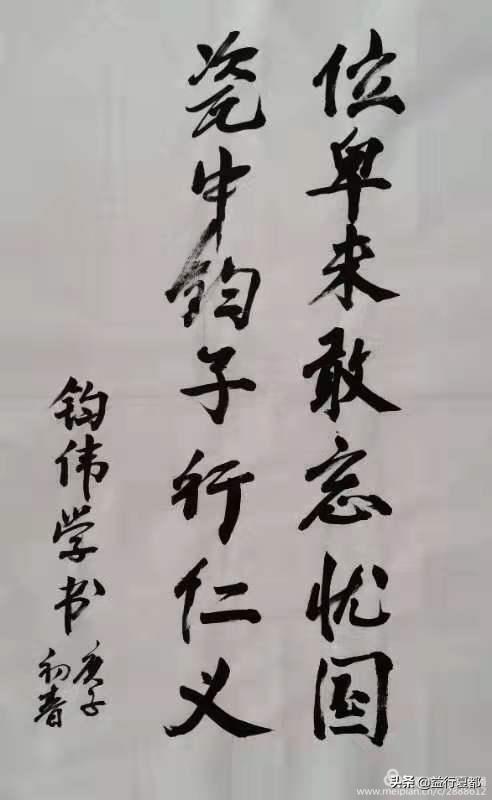 位卑未敢忘忧国
瓷中钧子行仁义
钧伟学书
庚子
初春
头条 @益行夏都
www.meipian.cn/c/2888612